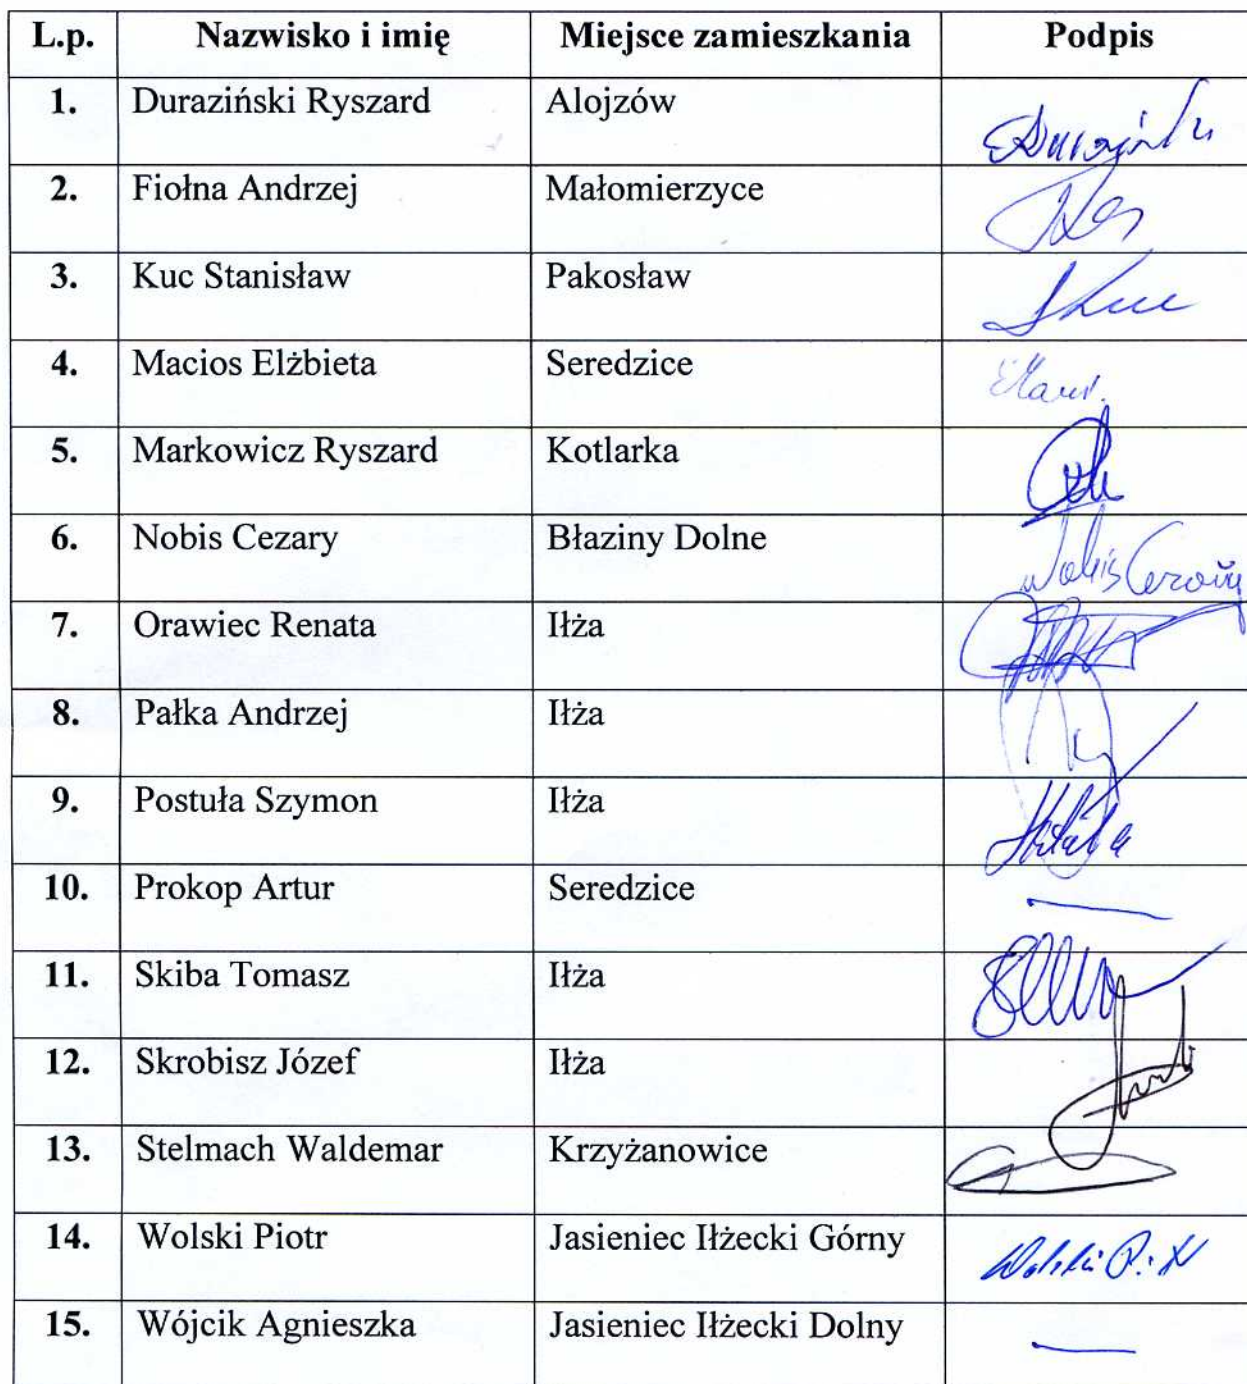 L.p. Nazwisko i imię Miejsce zamieszkania Podpis
1. Duraziński Ryszard Alojzów
2. Fiołna Andrzej Małomierzyce
3. Kuc Stanisław Pakosław SKuc
4. Macios Elżbieta Seredzice
5. Markowicz Ryszard Kotlarka
6. Nobis Cezary Błaziny Dolne Nobis Cezary
7. Orawiec Renata Iłża
8. Pałka Andrzej Iłża
9. Postuła Szymon Iłża
10. Prokop Artur Seredzice —
11. Skiba Tomasz Iłża
12. Skrobisz Józef Iłża
13. Stelmach Waldemar Krzyżanowice
14. Wolski Piotr Jasieniec Iłżecki Górny Wolski Piotr
15. Wójcik Agnieszka Jasieniec Iłżecki Dolny —